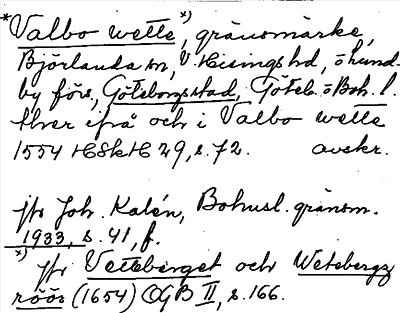 *Valbo wette,*) gränsmärke,
Björlanda sn, V Hisings hd, o Lund-
by förs, Göteborgs stad, Göteb. o Boh. l.
ther ifrå och i Valbo wette
1554 HSkH 29, s. 72. avskr.
jfr Joh. Kalén, Bohusl. gränsm.
1933, s. 41, f.
*) jfr Vetteberget och Wetebergz
röör (1654) OGB II, s. 166.